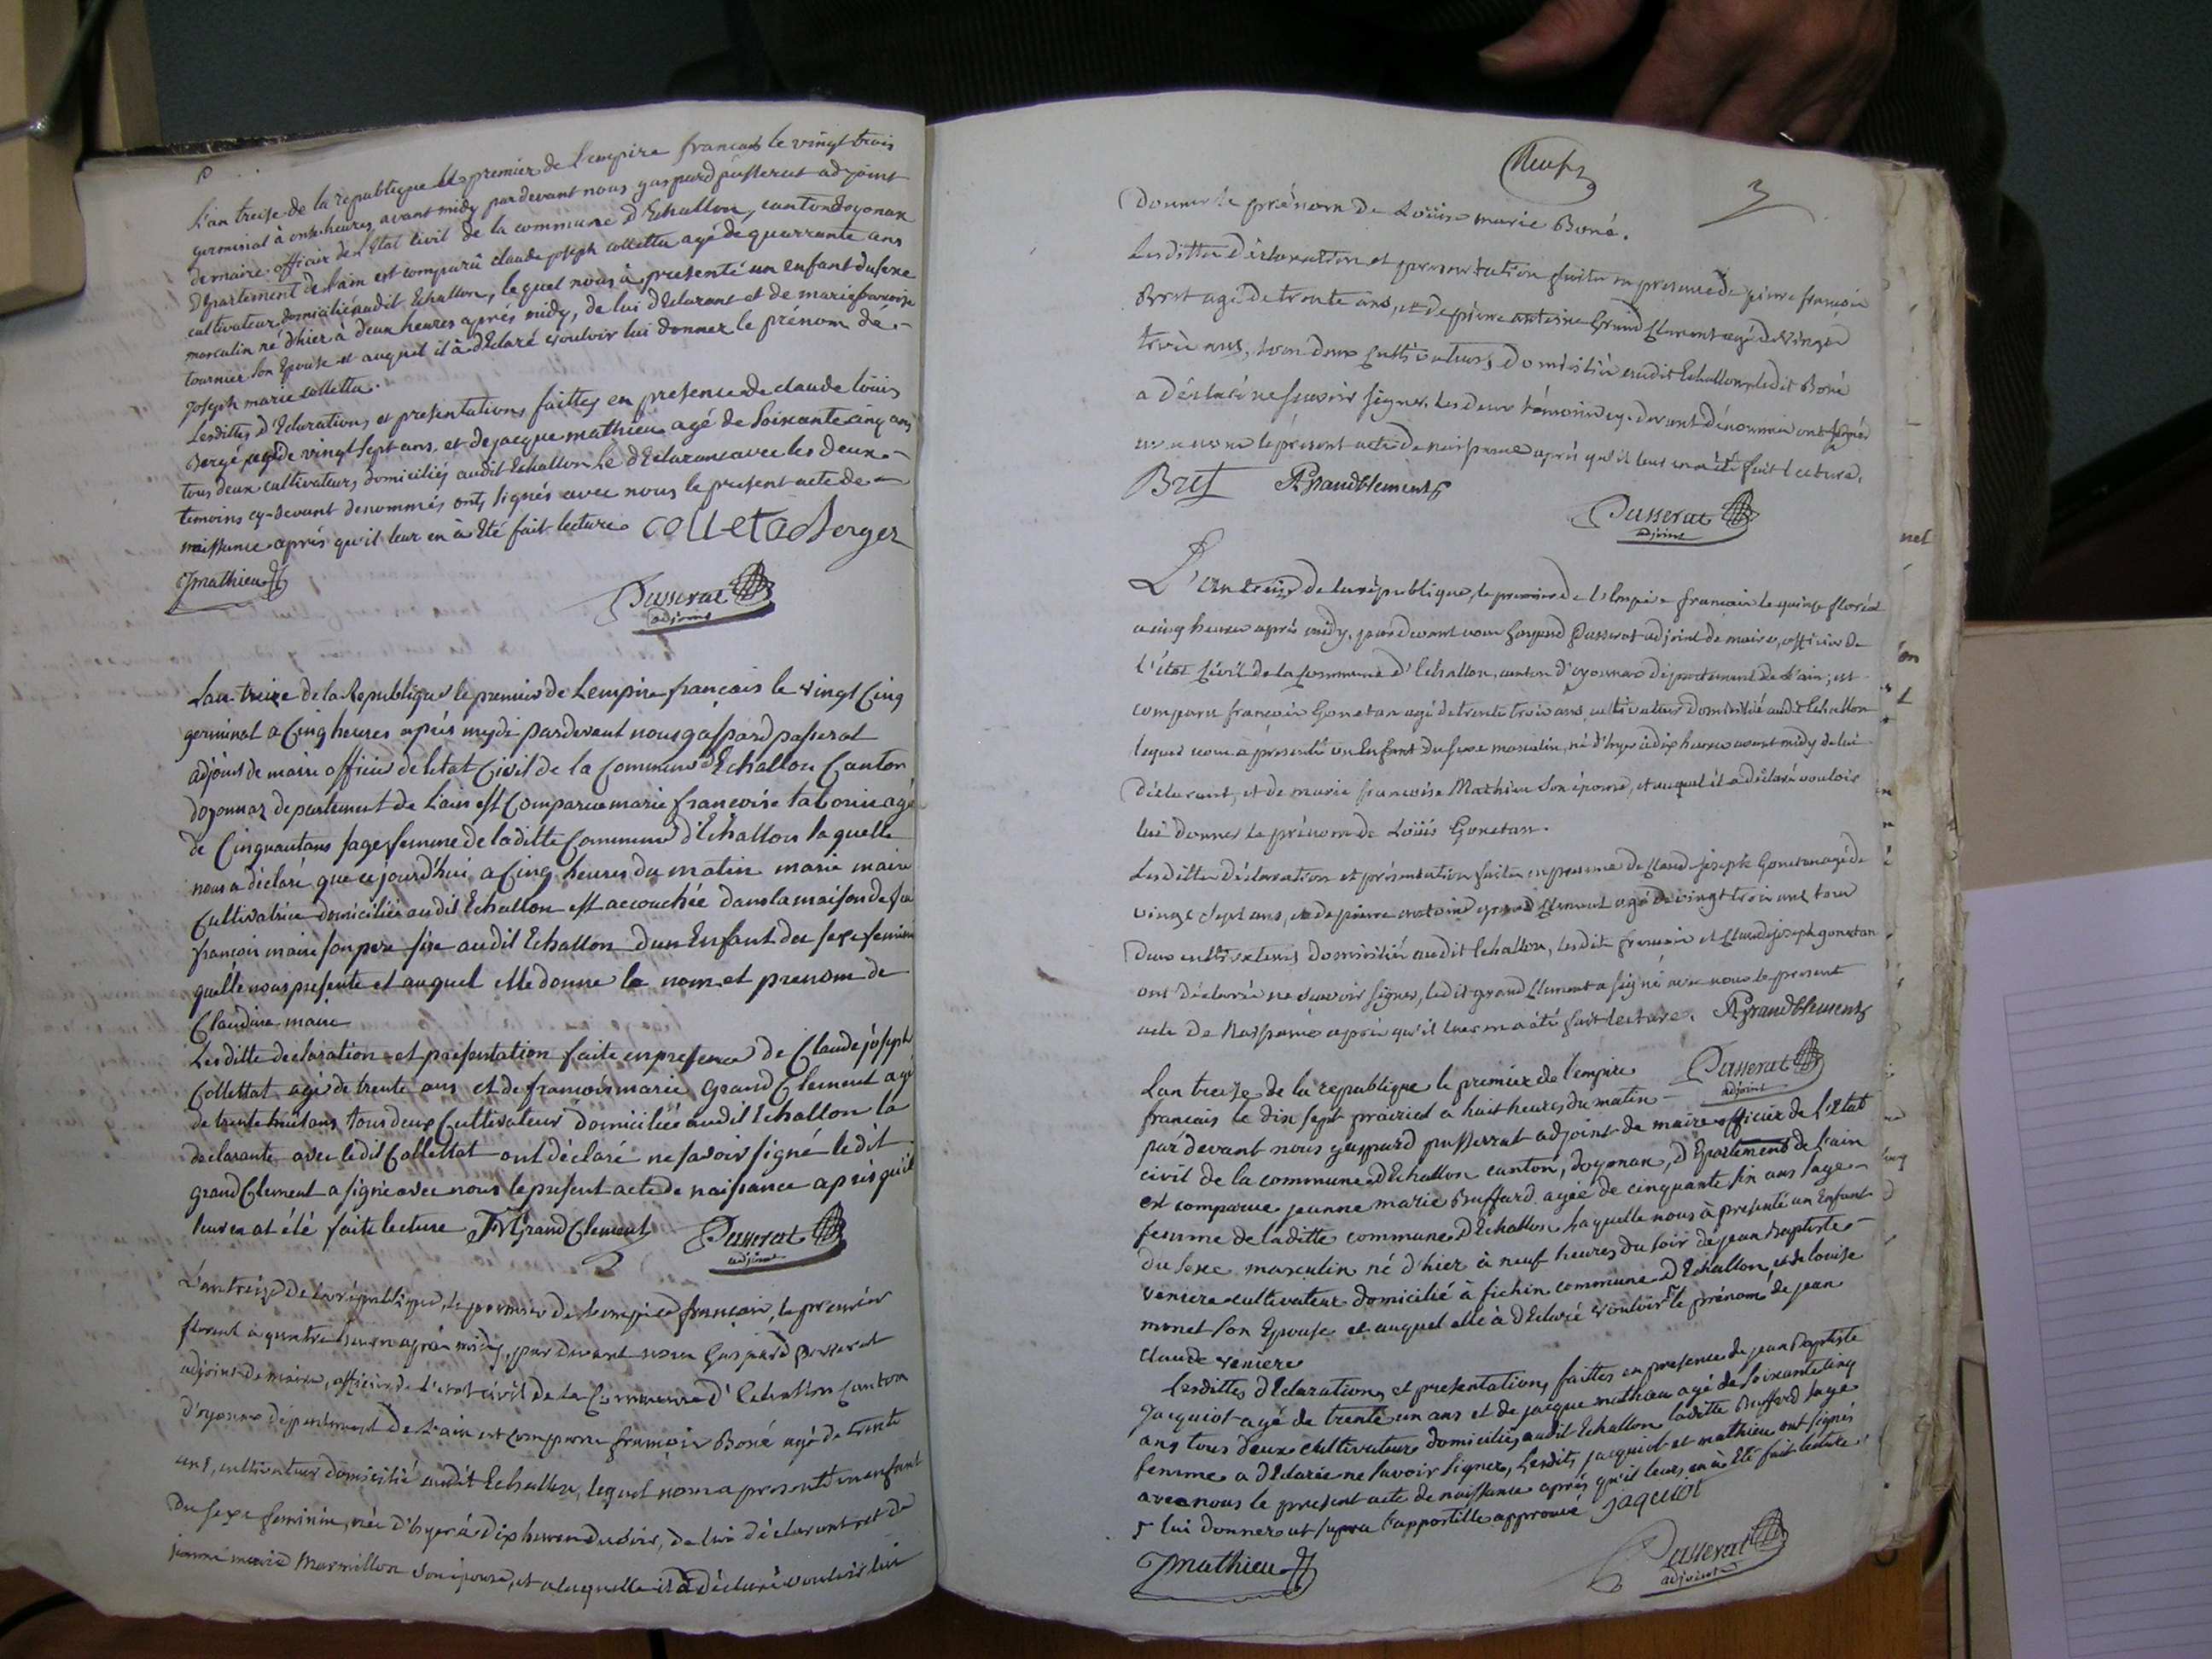 L'an treise de la republique le premier de l'empire francais le vingt trois
germinal à onze heures avant midy pardevant nous gaspard passerat adjoint
de maire officier de l'Etat civil de la commune d'Echallon, canton doyonax
departement de l'ain est comparû claude joseph colletta agé de quarrante ans
cultivateur domicilié audit Echallon, lequel nous à presenté un enfant du sexe
masculin né d'hier à deux heures après midy, de lui declarant et de marie francoise
tournier son Epouse et auquel il à déclaré vouloir lui donner le prénom de -
joseph marie colletta.
Lesdittes declarations et presentations faittes en presence de claude louis
Bergé agé de vingt sept ans, et de jacque mathieu agé de soixante cinq ans
tous deux cultivateurs domiciliés audit Echallon le déclarant avec les deux -
temoins cy-devant denommés ont signés avec nous le present acte de -
naissance après qu'il leur en à été fait lecture colleta Berger
Jmathieu
Passerat
adjoint
L'an treize de la Republique le premier de Lempire français le vingt Cinq
germinal a Cinq heures après mydi pardevant nous gaspard passerat
adjoint de maire officier de letat Civil de la Commune d'Echallon Canton
doyonnaz departement de Lain est Comparue marie francoise tabourin agé
de Cinquantans sage femme de laditte Commune d'Echallon laquelle
nous a déclaré que cejourd'hui a Cinq heures du matin marie maire
Cultivatrice domiciliée audit Echallon est accouchée dans la maison de feu
françois maire son pere sise audit Echallon dun Enfant du sexe feminin
quelle nous presente et auquel elle donne le nom et prenom de
Claudine maire
Lesditte declaration et presentation faite en presence de Claude joseph
Collettat agé de trente ans et de francois marie grand Clement agé
de trente huit ans tous deux Cultivateur domiciliée audit Echallon la
declarante avec ledit Collettat ont déclaré ne savoir signé ledit
grand Clement a signé avec nous le present acte de naissance après qu'il
leur en at été faite lecture FMGrandClement Passerat
adjoint
L'an treize de la république, le premier de l'empire français, le premier
floreal à quatre heures après midy, par devant nous Gaspard Passerat
adjoint de maire, officier de l'etat civil de la Commune d'Echallon Canton
d'oyonnax département de l'ain est comparu françois Boné agé de trente
ans, cultivateur domicilié audit Echallon, lequel nous a presenté un enfant
du sexe feminin, née d'hyer à dix heures du soir, de lui déclarant et de
jeanne marie Marmillon son épouse, et a laquelle il a déclaré vouloir lui
Neuf
3
donner le prénom de Loüise marie Boné.
Lesdittes déclaration et presentation faites en presence de pierre françois
Bret agé de trente ans, et de pierre antoine Grand Clement agé de vingt
trois ans, tous deux cultivateurs domiciliés audit Echallon, ledit Boné
a déclaré ne savoir signer. Les deux témoins cy-devant dénommés ont signés
avec nous le présent acte de naissance après qu'il leur en a été fait lecture.
Bret PAGrandclement
Passerat
adjoint
L'an treize de la république, le premier de l'Empire français le quinze floréal
a cinq heures après midy, pardevant nous Gaspard Passerat adjoint de maire, officier de
l'état Civil de la Commune d'Echallon, canton d'oyonnax département de l'ain; est
comparu françois Gonetan agé de trente trois ans, cultivateur domicilié audit Echallon
lequel nous a présenté un Enfant du sexe masculin, né d'hyer à dix heures avant midy de lui
déclarant, et de marie françoise Mathieu son épouse, et auquel il a déclaré vouloir
lui donner le prénom de Loüis Gonetan.
Lesdittes déclaration et présentation faites en presence de Claude joseph Gonetan agé de
vingt sept ans, et de pierre antoine grand Clement agé de vingt trois ans, tous
deux cultivateurs domiciliés audit Echallon, lesdits françois et Claude joseph gonetan
ont déclarés ne savoir signer, ledit grand Clement a signé avec nous le present
acte de Naissance après qu'il leur en a été fait lecture. PAGrandclement
Passerat
adjoint
L'an treize de la republique le premier de l'empire
francais le dix sept prairial a huit heures du matin -
par devant nous gaspard passerrat adjoint de maire officier de l'Etat
civil de la commune d'Echallon canton, doyonax, d'Epartement de l'ain
est comparue jeanne marie Buffard agée de cinquante six ans sage -
femme de laditte commune d'Echallon laquelle nous à presenté un Enfant
du sexe masculin né d'hier à neuf heures du soir de jean Baptiste -
veniere cultivateur domicilié à fichin commune d'Echallon, et de louise
monet son Epouse et auquel elle à déclaré vouloir le prénom de jean
claude veniere
Lesdittes déclarations et presentations faittes en presence de jean Baptiste
Jacquiot agé de trente un ans et de jacque mathieu agé de soixante cinq
ans tous deux cultivateurs domiciliés audit Echallon laditte Buffard sage
femme a déclarée ne savoir signer, Lesdits jacquiot et mathieu ont signés
avec nous le present acte de naissance après qu'il leurs en à Eté fait lecture.
lui donner ut supra l'appostille approuvé jaquiot
Jmathieu
Passerat
adjoint